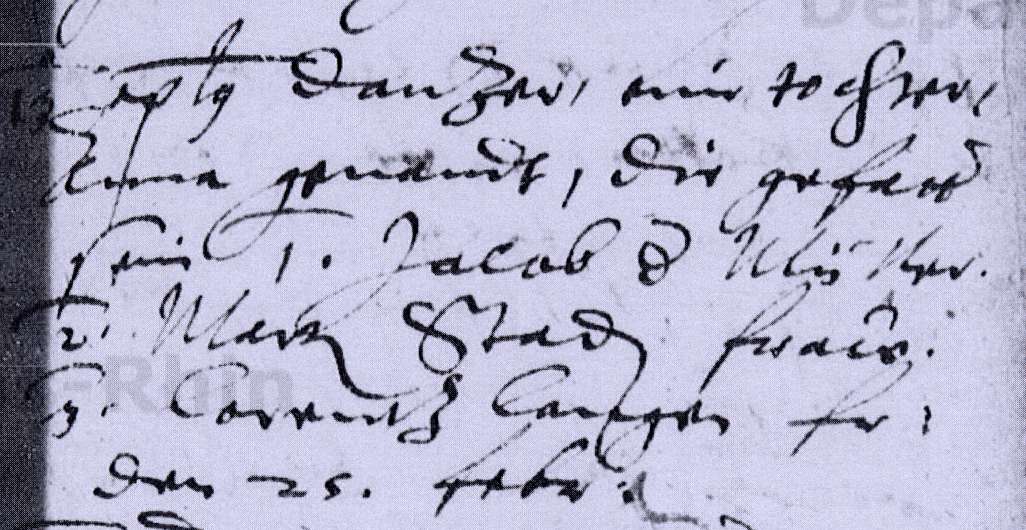 13 Dantzer, ein tochter,
Anna genandt, die gefatt
sein 1. Jacob d Müller.
2. Marx Stadz fraw.
3. Lorentz Langen fr:
den 25. febr: